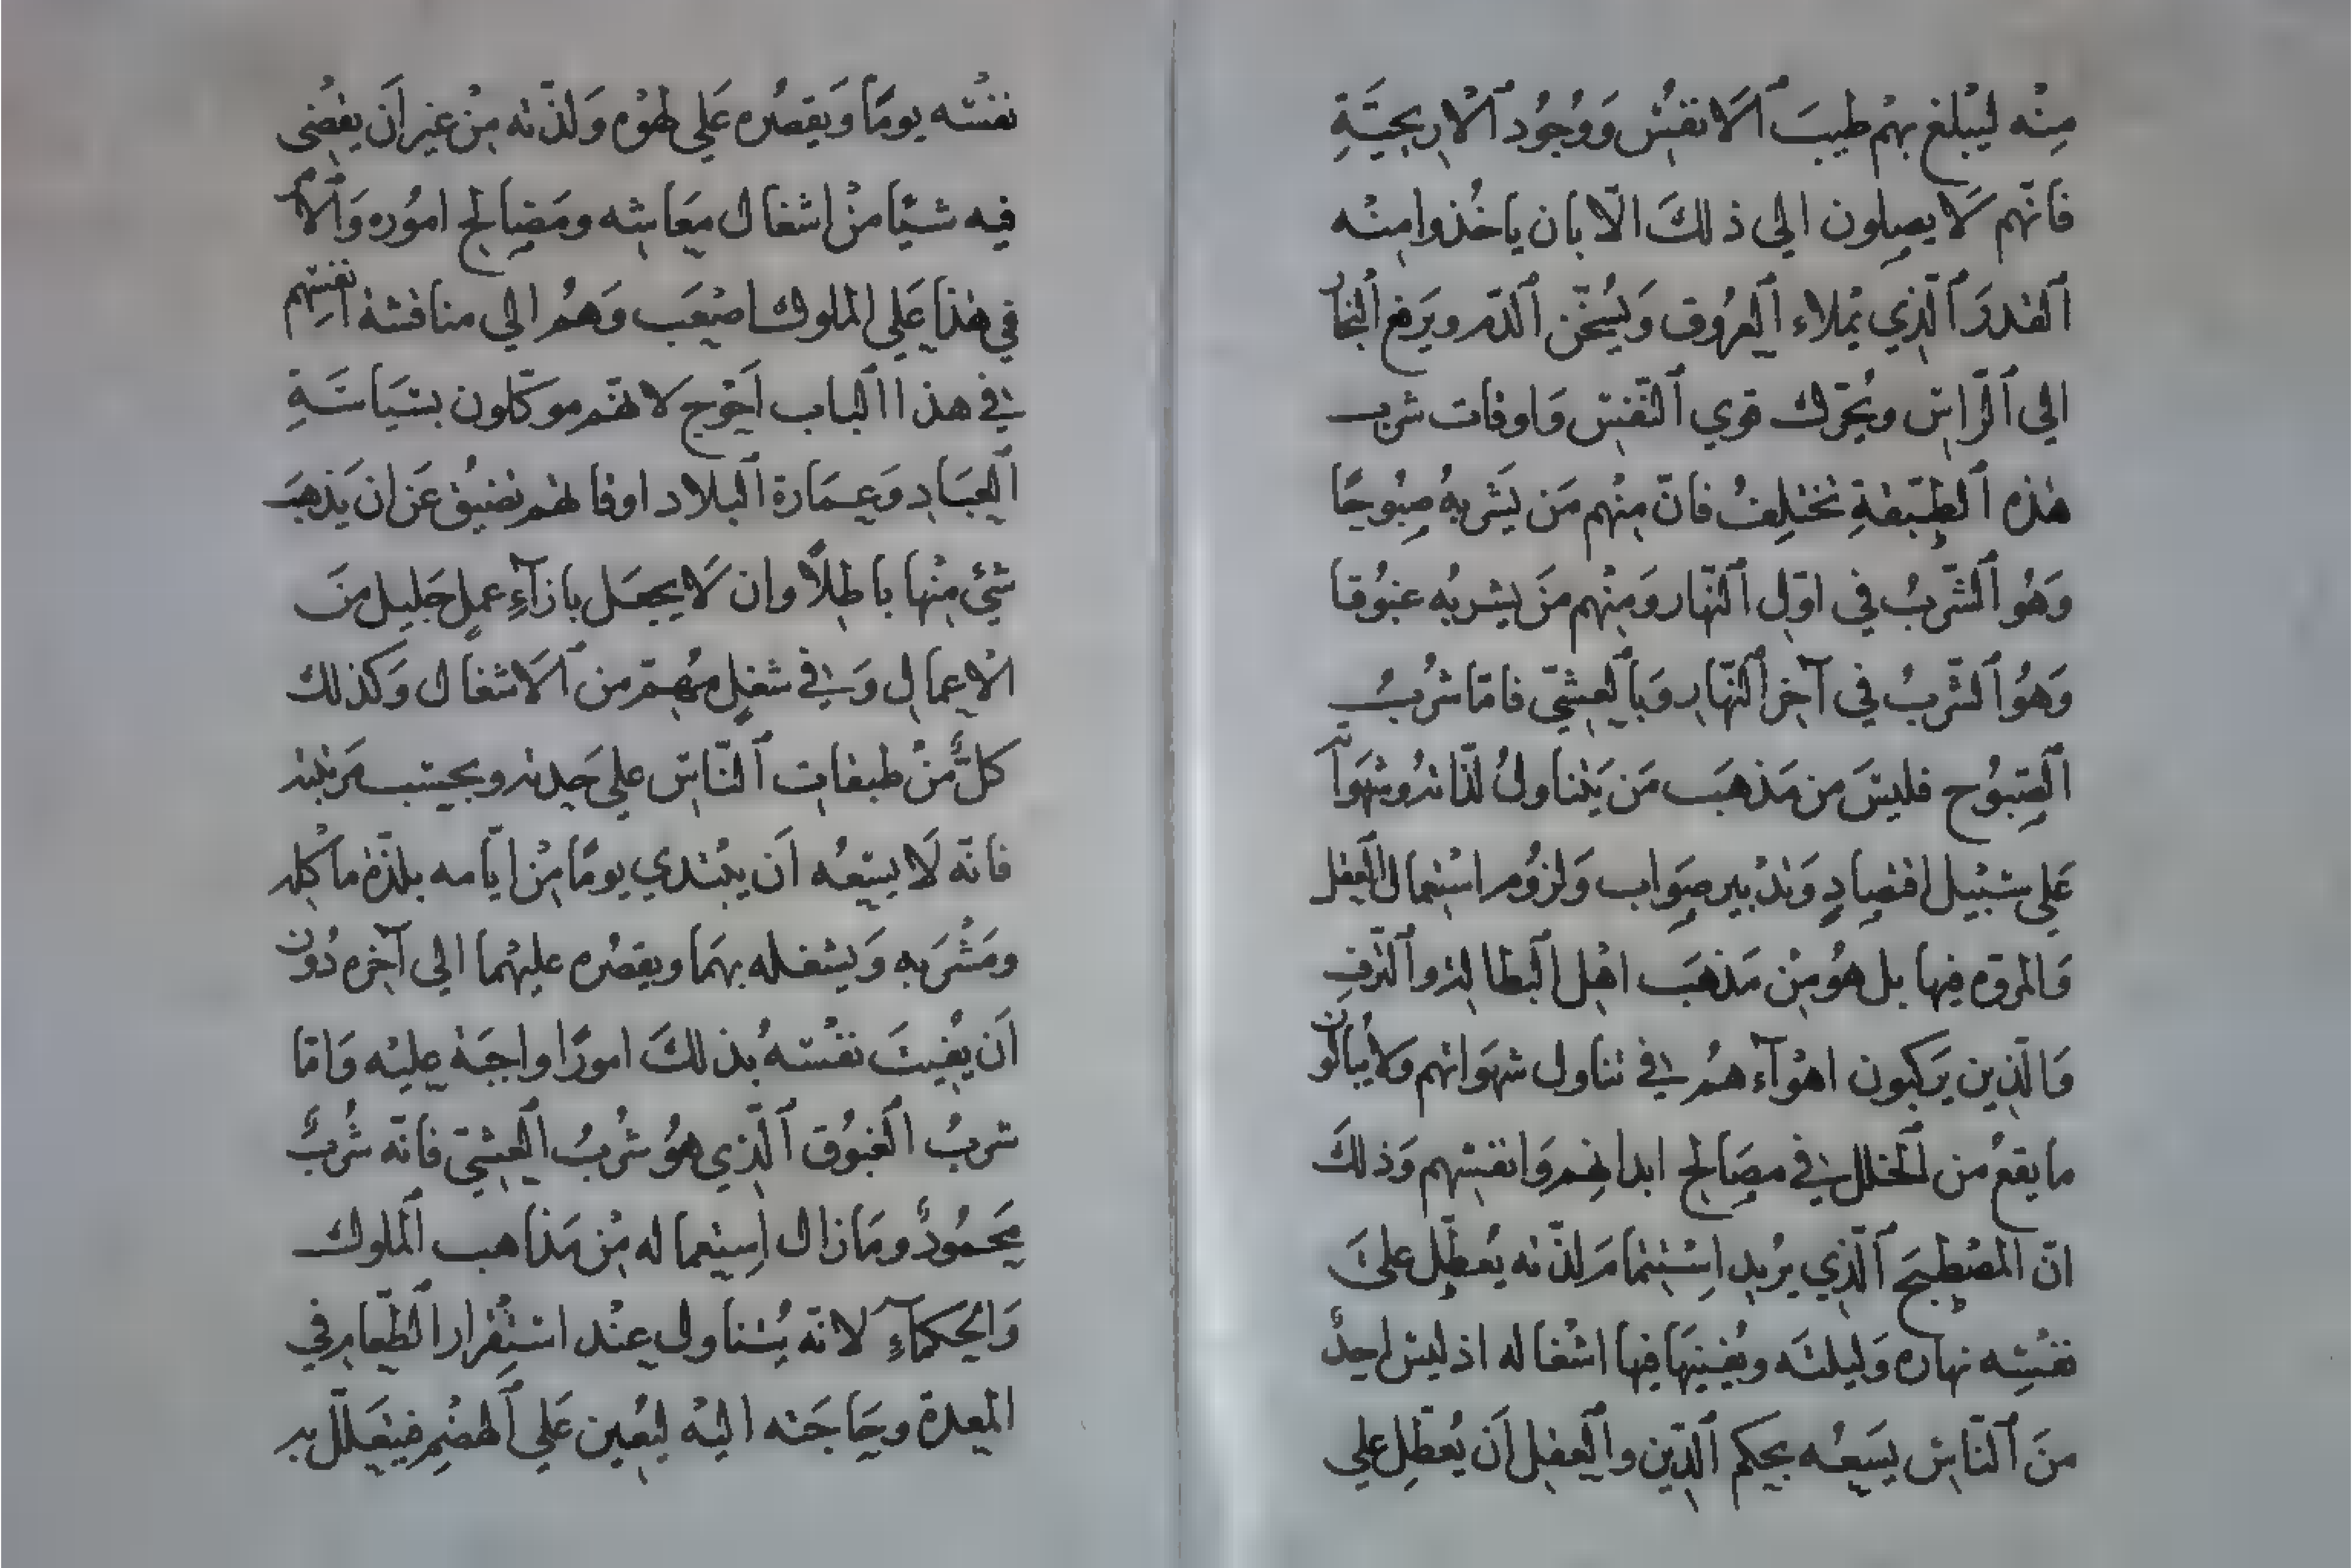 مِنْه ليَبْلغ بهْم طيبَ ٱلَانفسْ وَوُجُود ٱلْاريحيَّةِ
فَانّهم لَا يصِلون الي ذ لكَ الّا بان ياخُذوا مِنْه
ٱلقدرَ ٱلّذي يمْلاء ٱلعرُوق وَيُسخّن ٱلدّم ويَرفع ٱلبُخار
الي ٱلرّاس ويُحرّك قوي ٱلنّفس وَاوقات شرب
هٰذه ٱلطبّقةِ تختلِفُ فانّ مِنْهم مَن يَشربهُ صبُوحًا
وَهُو ٱلشّربُ في اوّل ٱلنّهار وَمنْهم منَ يشربُه غبُوقا
وَهُو ٱلشّربُ في آخر ٱلنّهار وَبٱلعشيّ فامّا شرُبُ
ٱلصّبوُح فليسَ من مَذهَب مَن يَتناولُ لذّاته وشهَواته
عَلي سَبْيل اقتصادٍ وَتدْبير صَواب وَلزوُم اسْتعمال ٱلعقل
وَالمروّه فيها بل هوُ مِنْ مَذهَب اهْل ٱلبطاله وٱلترّف
وَالّذين يَركبون اهْوآء همُ في تناول شهَواتهم وَلايُبالون
ما يقعُ من ٱلخلل في مصَالح ابدانهم وَانفسهم وَذ لكَ
انّ المصْطبحَ ٱلّذي يرُيد اسْتتمام لذّته يُعطّل علىَ
نفسْه نهاره وَليلتَه ويُفيتهَا فيها اشْغاله اذ ليس لاحدٌ
منَ ٱلنّاس يسَعُه بحكم ٱلدّين وٱلعقل اَن يُعطّل علي
نفسْه يومًا وَيقصُره عَلي لهوْه وَلذّته مِنْ غير اَن يقضى
فيه شيًا منْ اشغال معَاشه ومَصالح امورُه وَٱلْامر
في هٰذا عَلي الملوك اصْعَب وَهمُ الي منافسة انفسهم
في هذا ٱلباب اَحْوج لانهّم موكّلون بسَياسَةِ
ٱلعبَاد وَعمَارة ٱلبلاد اوقا تهم تضيقُ عَن ان يَذهبَ
شئ منْها باطلًا وان لَا يجعَل بازآءِ عملٍ جَليل منَ
الْاعمال وَفي شغلٍ مهمّ من ٱلَاشغال وَكذلك
كلٌّ منْ طبقات ٱلنّاس علي حِدته وبحسب مرتبته
فانّه لَا يسَعُه اَن يبْتدي يومًا مِنْ ايّامه بلذّة ماكْله
ومَشْرَبه وَيشغله بهمَا ويقصُره عليْهما الي آخره دُون
اَن يفُيتَ نفسْهُ بذ لكَ امورًا واجبَة عليْه وَامّا
شربُ ٱلغبوُق ٱلّذي هوُ شرُبُ ٱلعشيّ فانّه شُربٌ
محمُودٌ ومَا زال اِستعما له مِنْ مَذاهب ٱلملوك
وَالحكمآءِ لانّه يُتناول عنْد استْقرار ٱلطّعام في
المعدة وحَاجَته اليْه ليُعين عَلي ٱلهضْم فيتعَلّل به